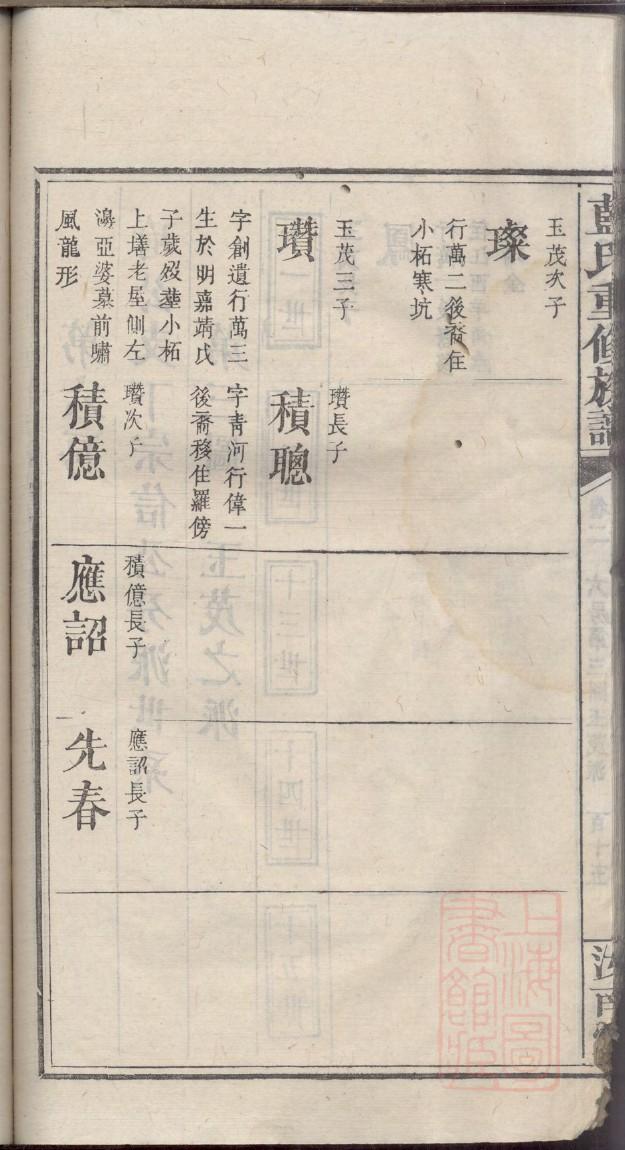 藍氏重修族譜
玉茂次子
璨
行萬二後裔住
小柘寒坑
玉茂三子
瓚
字創遺行萬三
生於明嘉靖戊
子歲歿塟小柘
上墡老屋側左
鴻亞婆墓前嘯
風龍形
瓚長子
積聰
字青河行偉一
後裔移住羅傍
瓚次子
積億
積億長子
應詔
應詔長子
先春
上海圖
書館藏